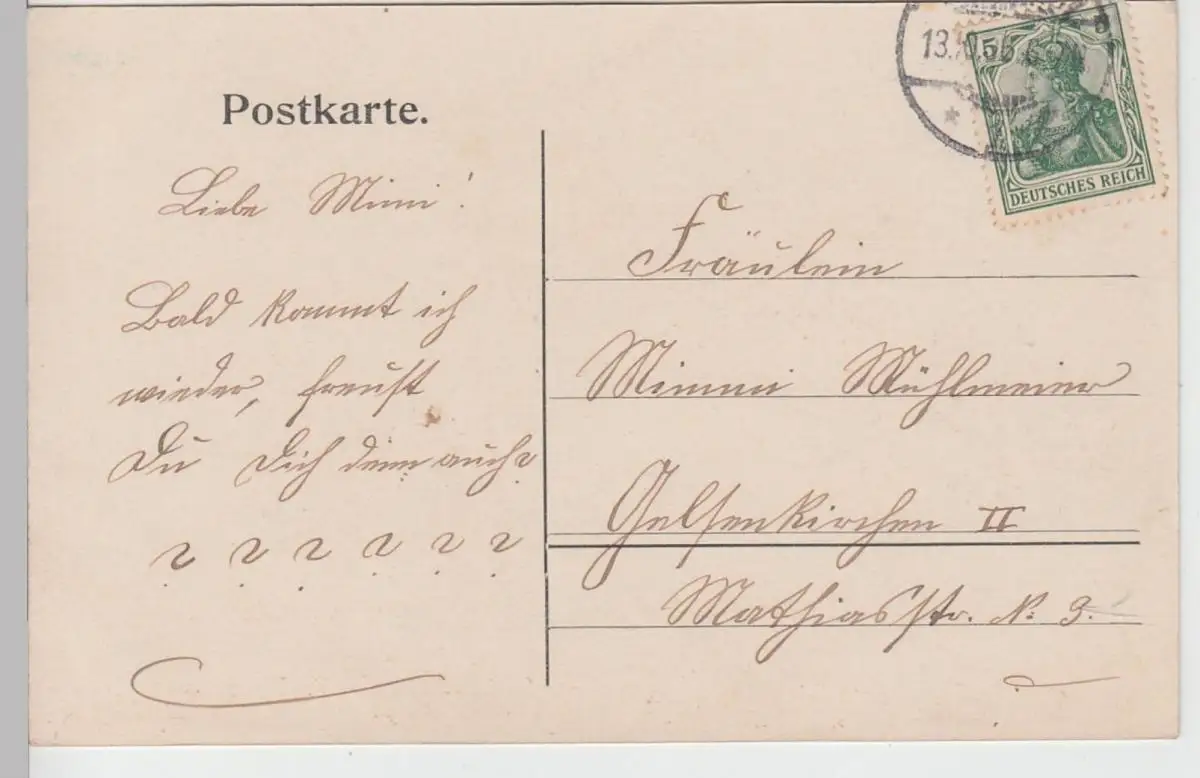 Postkarte.
Liebe Mimi!
Bald kommt ich
wieder, freust
Du Dich denn auch?
? ? ? ? ? ?
5
DEUTSCHES REICH
Fräulein
Mimmi Mühlmeier
Gelsenkirchen II
Mathiasstr. N: 3.